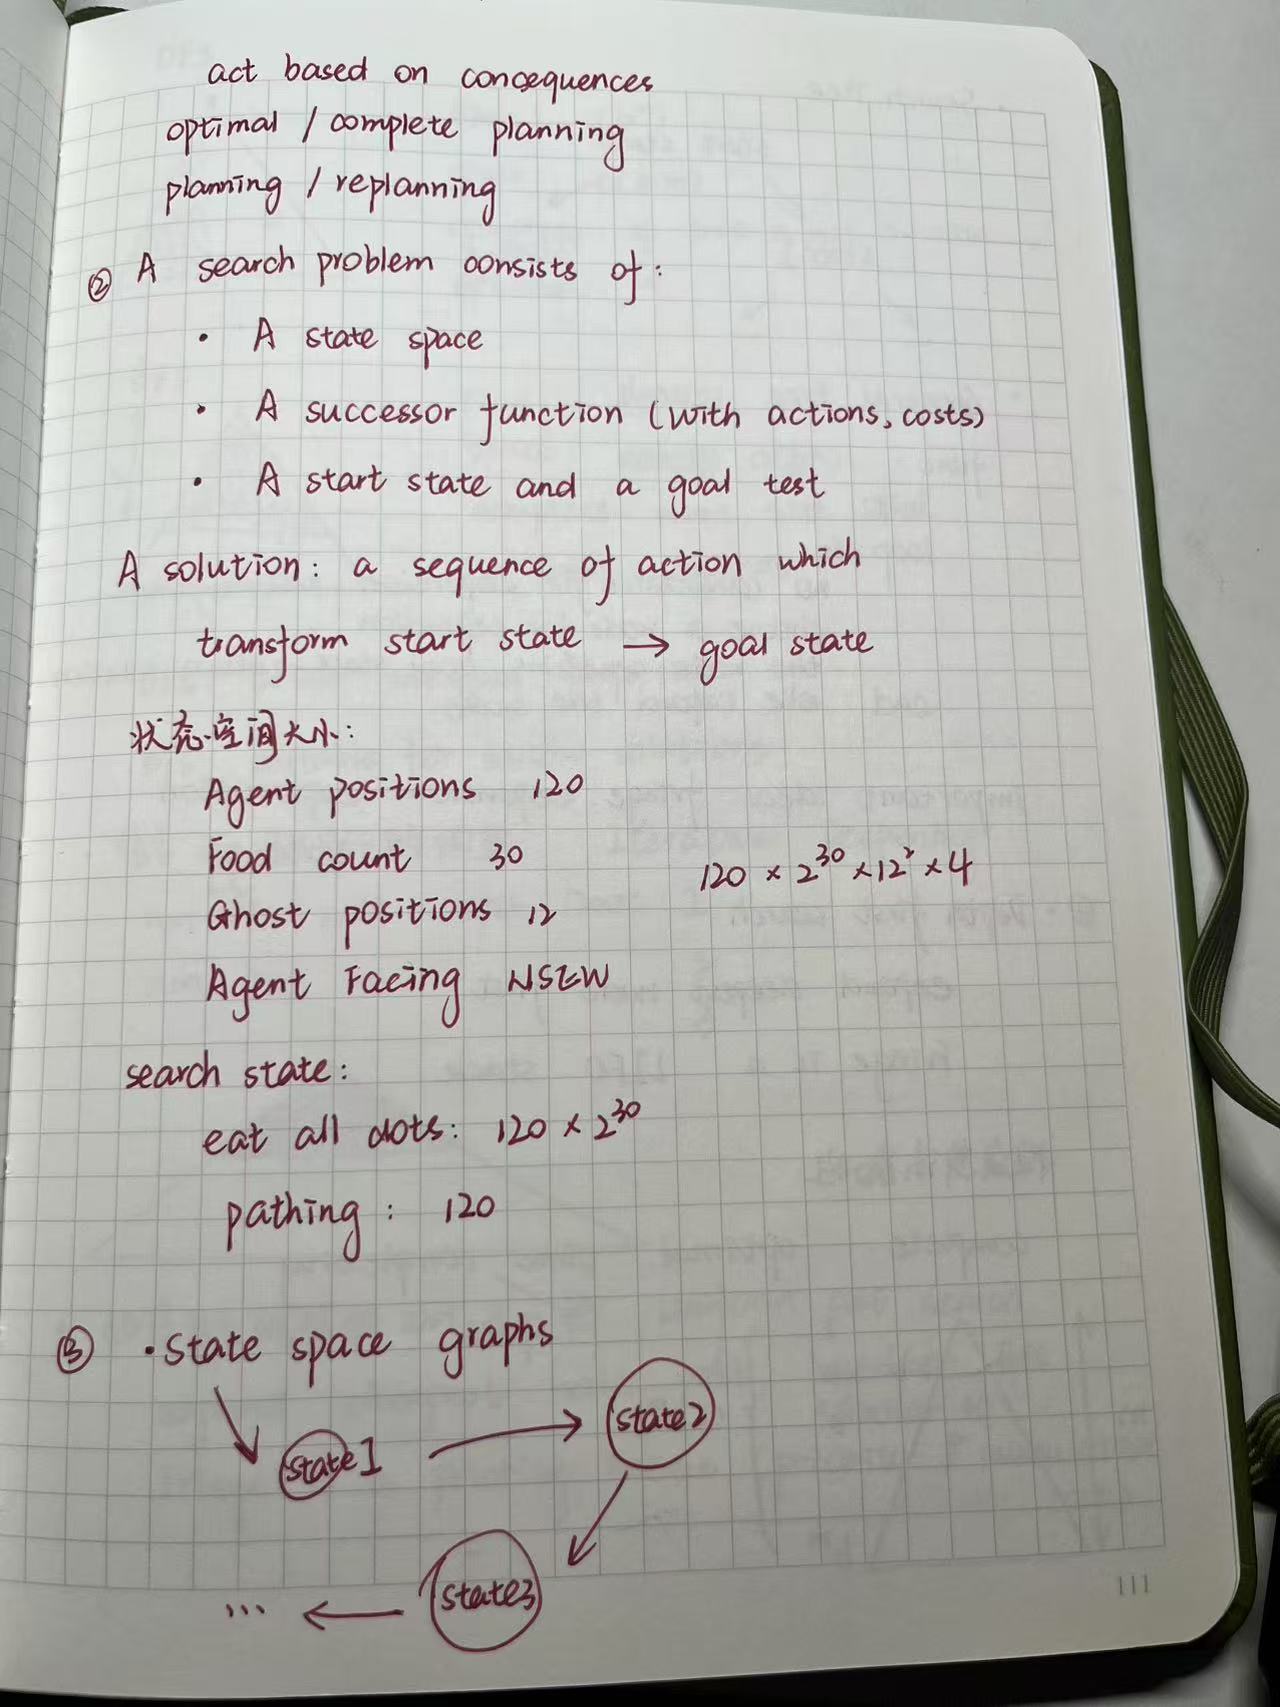 act based on concequences
optimal / complete planning
planning / replanning
② A search problem consists of:
· A state space
· A successor function (with actions, costs)
· A start state and a goal test
A solution: a sequence of action which
transform start state → goal state
状态空间大小:
Agent positions 120
Food count 30
120 × 2³⁰ × 12² × 4
Ghost positions 12
Agent Facing NSEW
search state:
eat all dots: 120 × 2³⁰
pathing: 120
③ · State space graphs
state1 → state2
state3
... ←
111